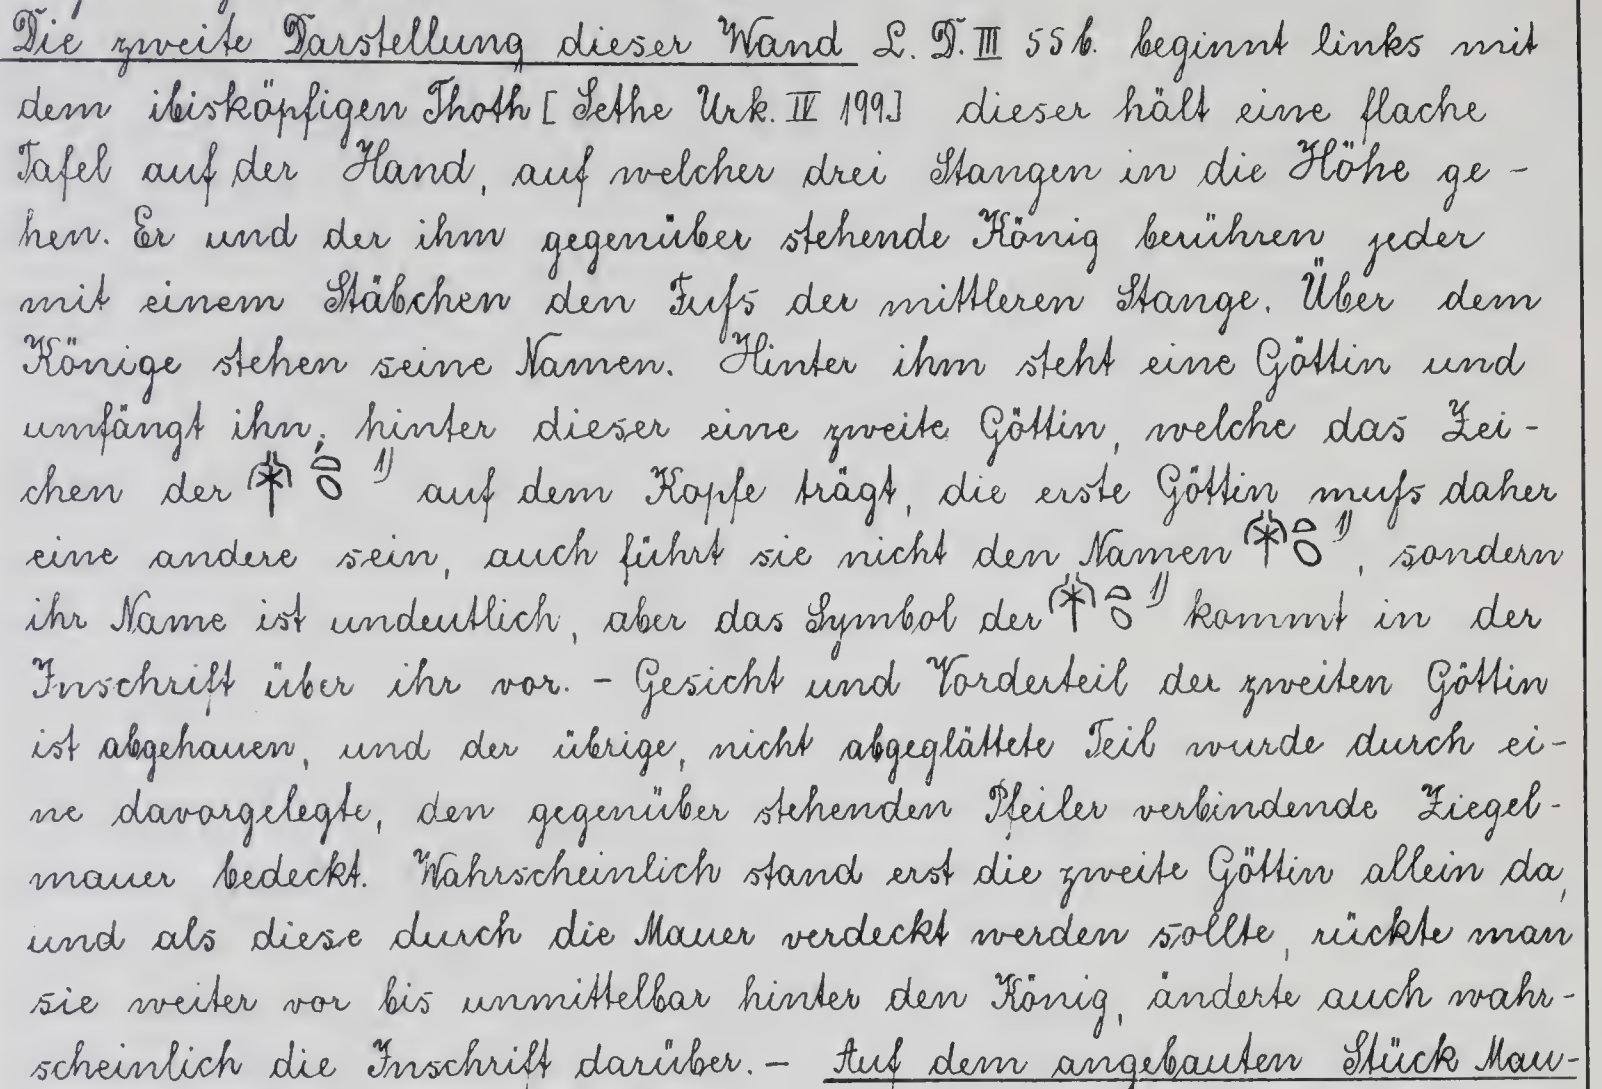 Die zweite Darstellung dieser Wand L. D. III 55 b. beginnt links mit
dem ibisköpfigen Thoth [Sethe Urk. IV 199] dieser hält eine flache
Tafel auf der Hand, auf welcher drei Stangen in die Höhe ge-
hen. Er und der ihm gegenüber stehende König berühren jeder
mit einem Stäbchen den Fufs der mittleren Stange. Über dem
Könige stehen seine Namen. Hinter ihm steht eine Göttin und
umfängt ihn; hinter dieser eine zweite Göttin, welche das Zei-
chen der 𓋇𓏏𓆇 1) auf dem Kopfe trägt, die erste Göttin mufs daher
eine andere sein, auch führt sie nicht den Namen 𓋇𓏏𓆇 1), sondern
ihr Name ist undeutlich, aber das Symbol der 𓋇𓏏𓆇 1) kommt in der
Inschrift über ihr vor. - Gesicht und Vorderteil der zweiten Göttin
ist abgehauen, und der übrige, nicht abgeglättete Teil wurde durch ei-
ne davorgelegte, den gegenüber stehenden Pfeiler verbindende Ziegel-
mauer bedeckt. Wahrscheinlich stand erst die zweite Göttin allein da,
und als diese durch die Mauer verdeckt werden sollte, rückte man
sie weiter vor bis unmittelbar hinter den König, änderte auch wahr-
scheinlich die Inschrift darüber. - Auf dem angebauten Stück Mau-